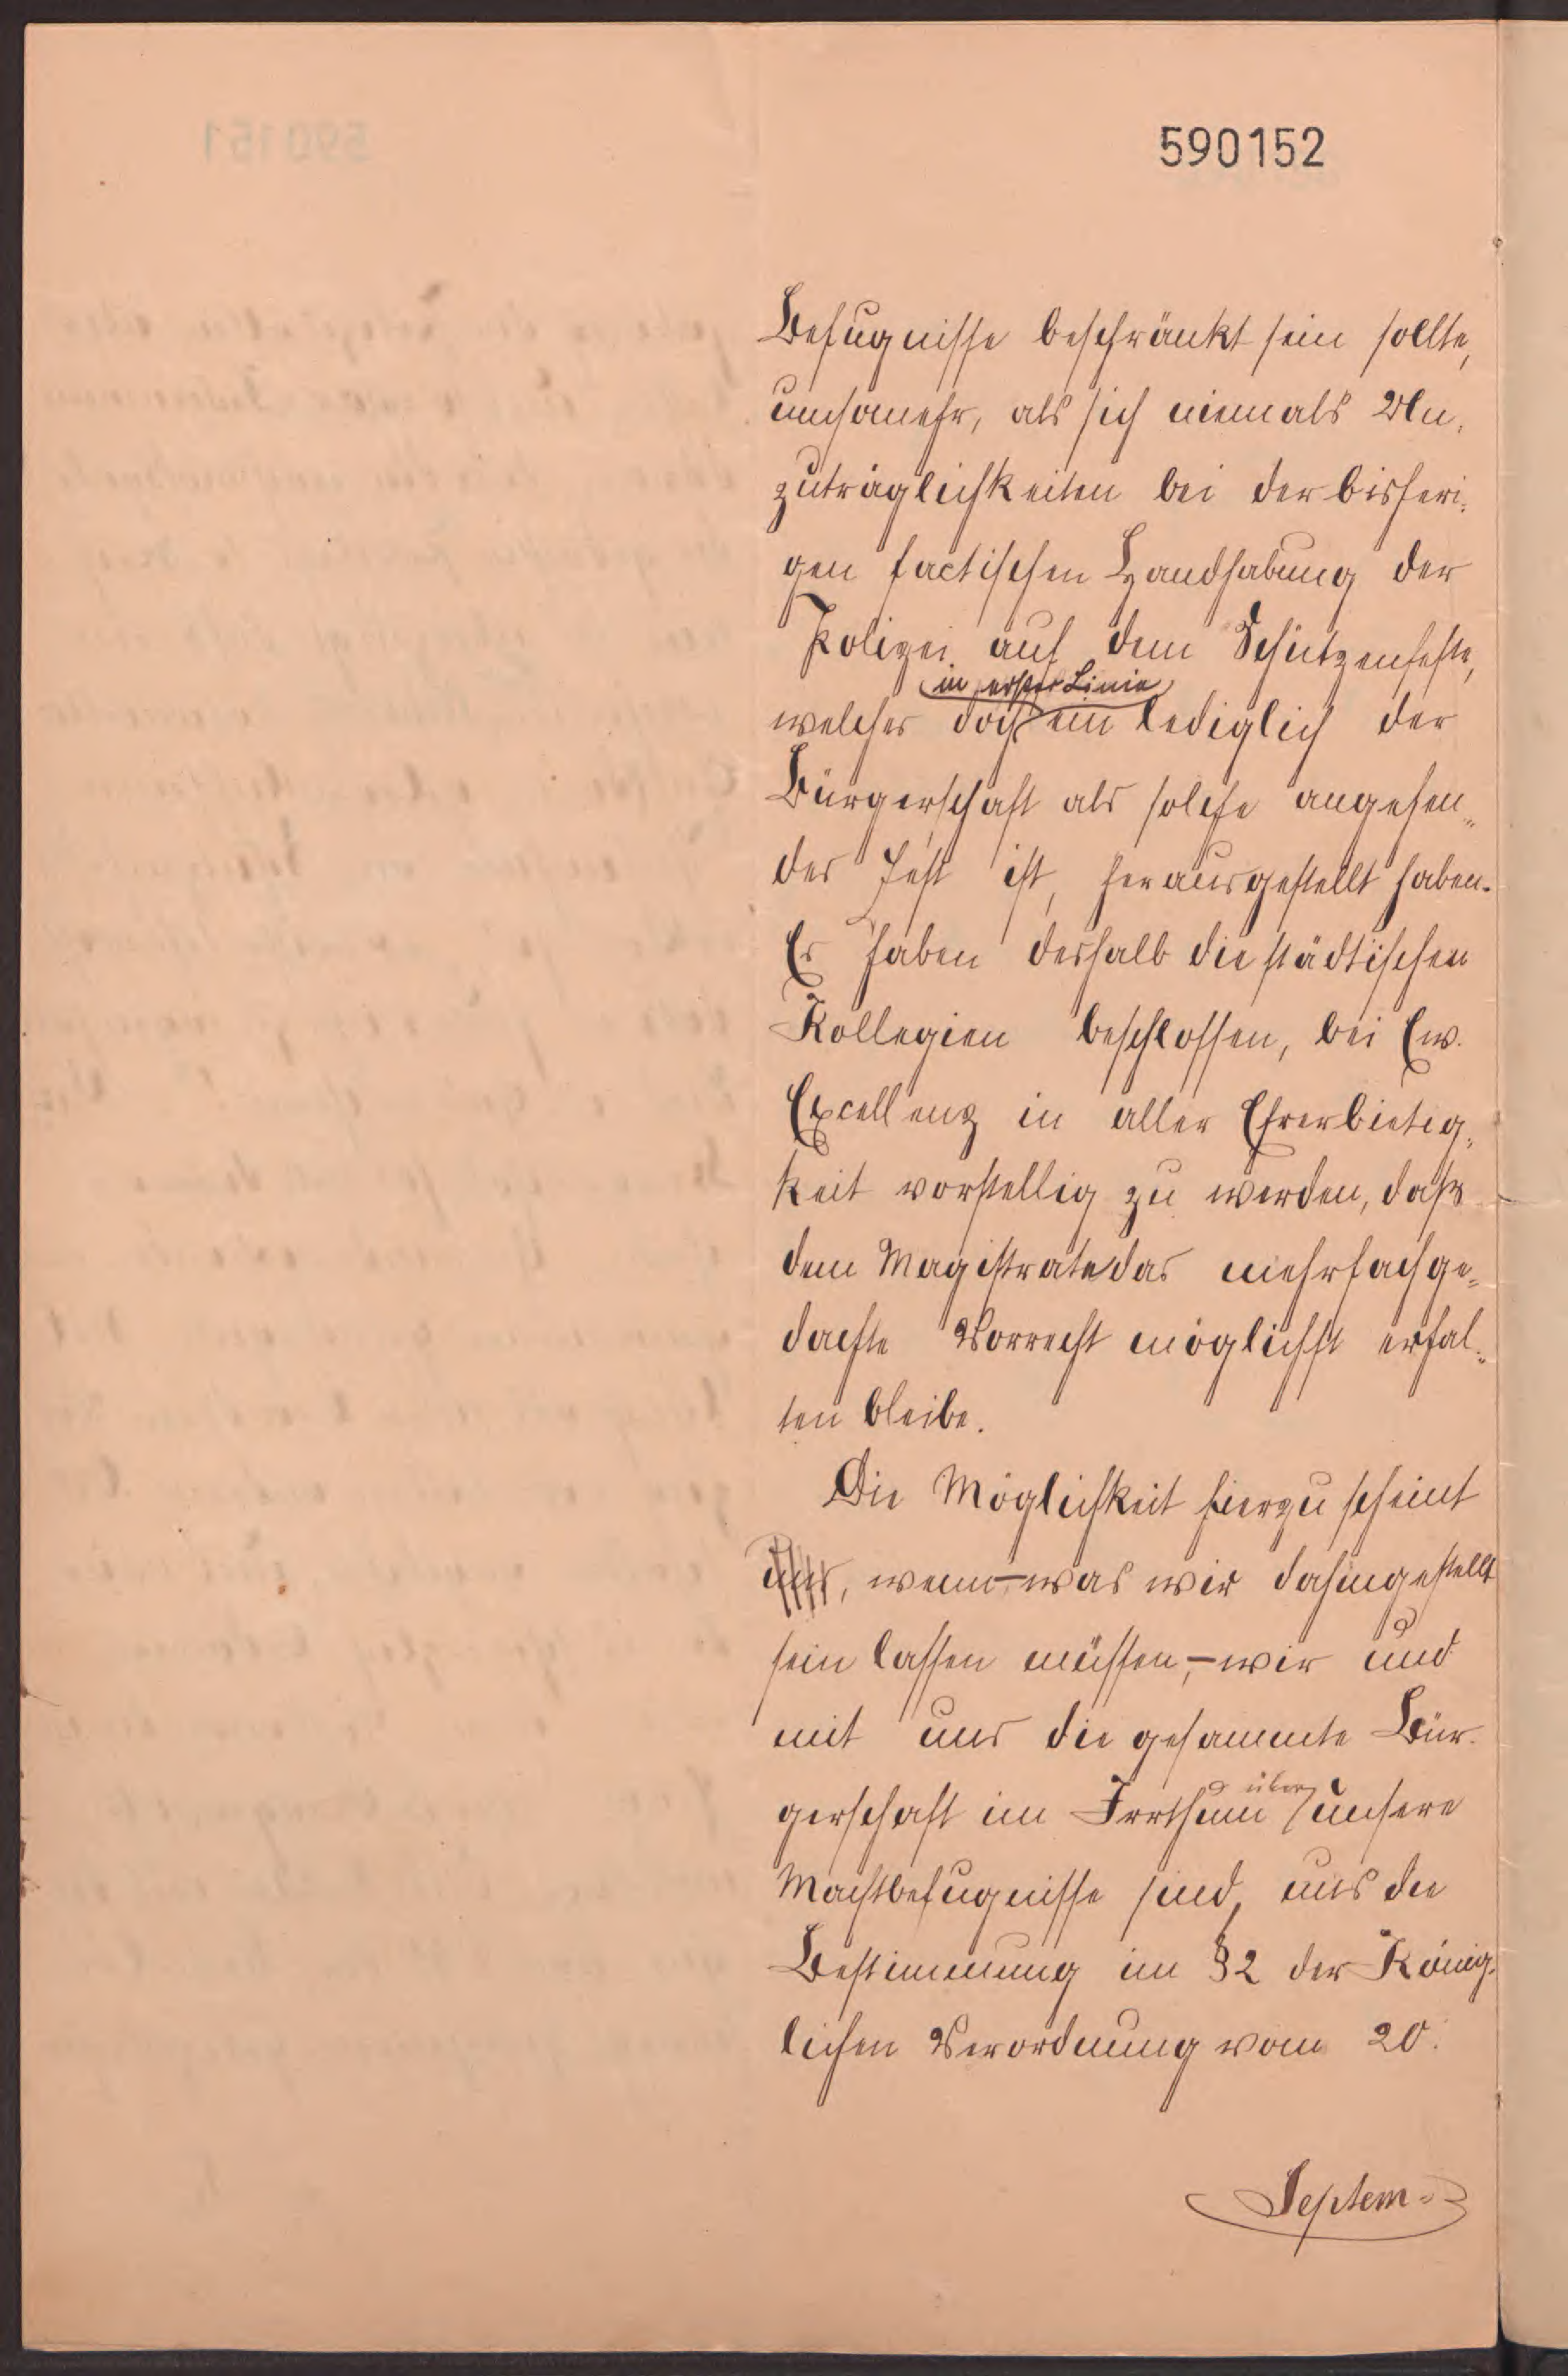 590152
Befugnisse beschränkt sein sollte,
umsomehr, als sich niemals Un-
zuträglichkeiten bei der bisheri-
gen factischen Handhabung der
Polizei auf dem Schützenfeste,
in erster Linie
welches doch ein lediglich der
Bürgerschaft als solche angehen-
des Fest ist, herausgestellt haben.
Es haben deshalb die städtischen
Kollegien beschlossen, bei Ew.
Excellenz in aller Ehrerbietig-
keit vorstellig zu werden, daß
dem Magistrate das mehrfachge-
dachte Vorrecht möglichst erhal-
ten bleibe.
Die Möglichkeit hierzu scheint
uns, wenn – was wir dahingestellt
sein lassen müssen, – wir und
mit uns die gesammte Bür-
gerschaft im Irrthum über unsere
Machtbefugnisse sind, uns die
Bestimmung im § 2 der König-
lichen Verordnung vom 20.
Septem-